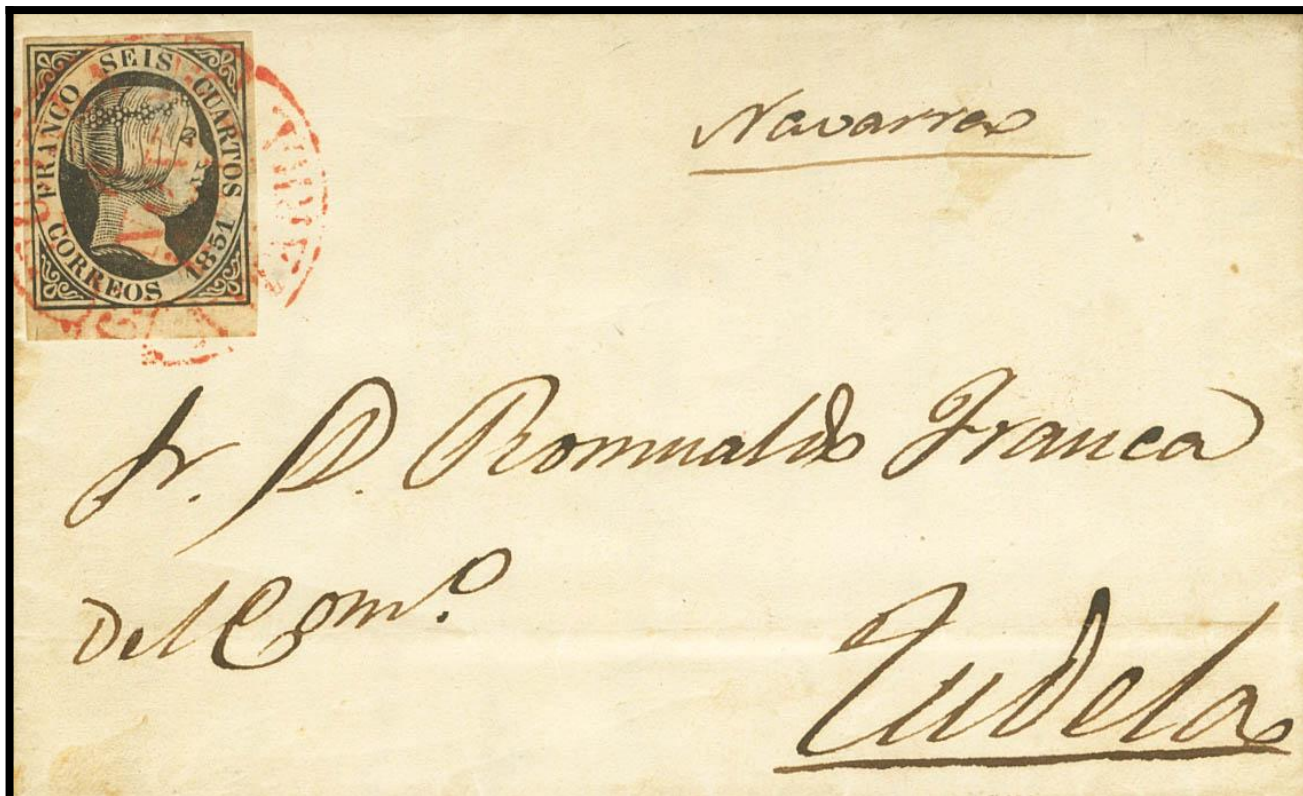 FRANCO SEIS CUARTOS
CORREOS 1851
Navarra
Sr. D. Romualdo Franca
Del Comº.
Tudela